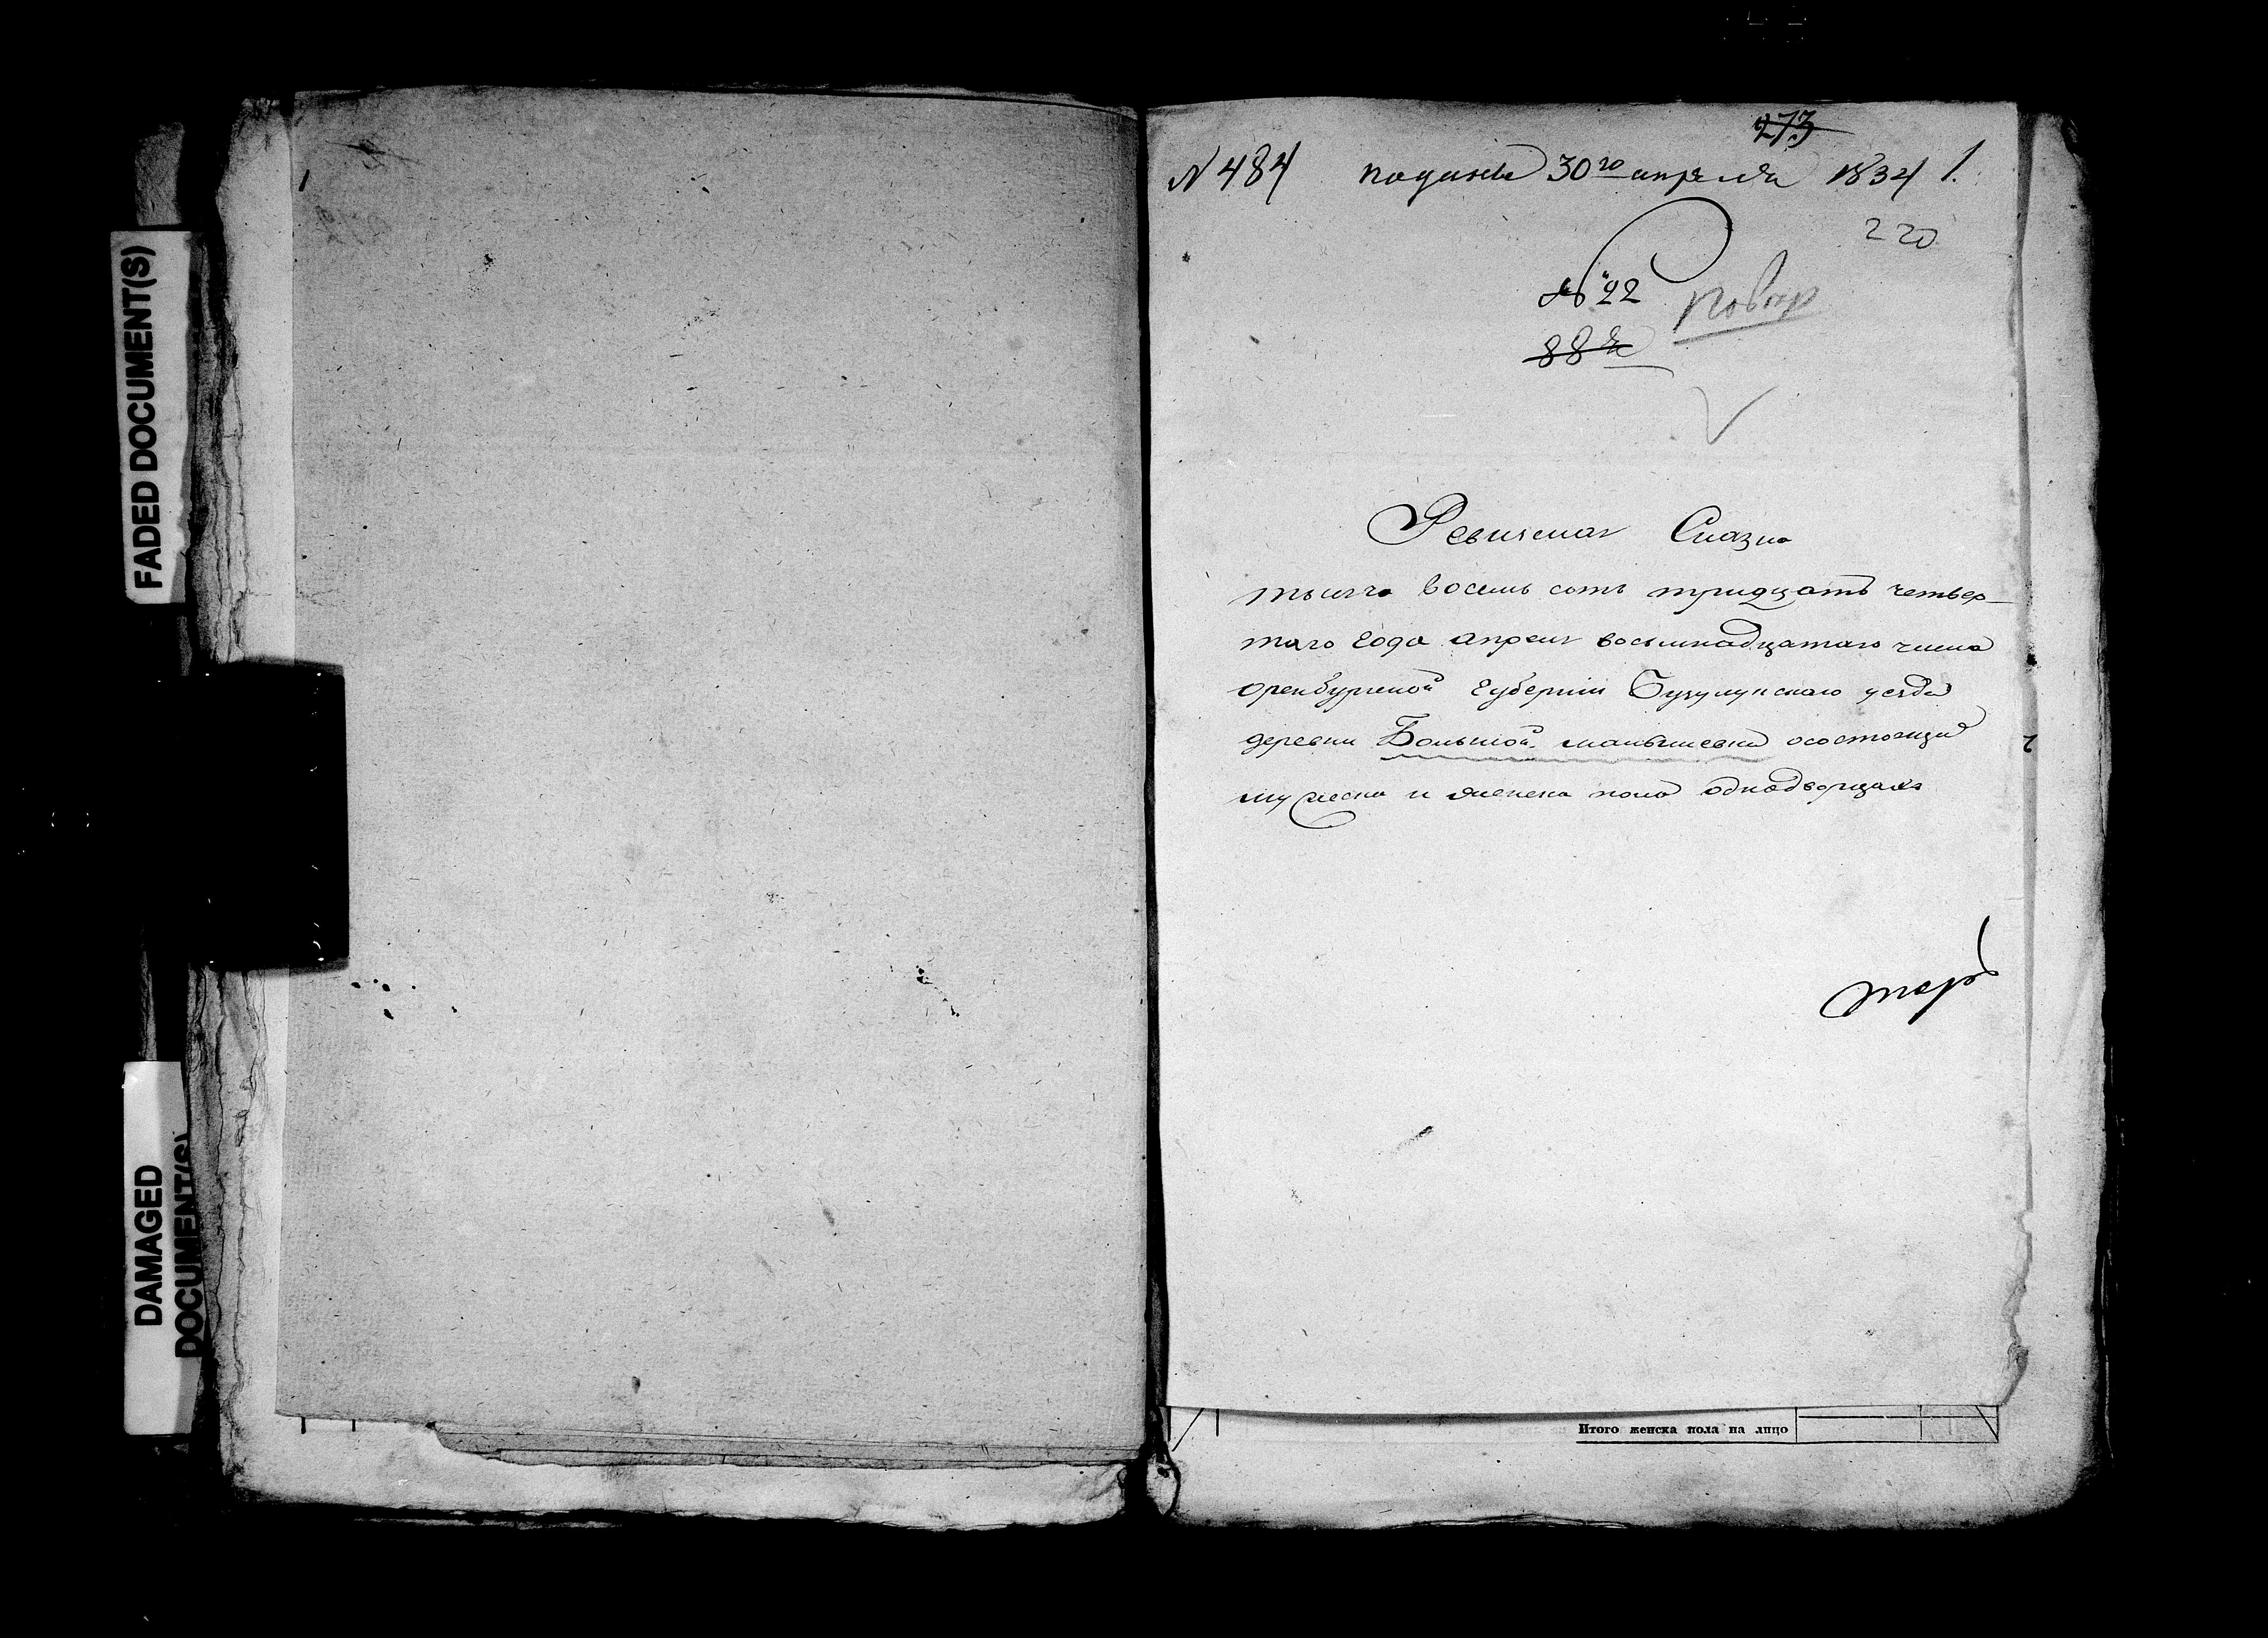 FADED DOCUMENT(S)
DAMAGED
DOCUMENT(S)
273
N 484 подана 30го апреля 1834 1.
220
№ 22
88
Ревиская Сказка
тысеча восемь сотъ тридцать четвер-
таго года апреля восьмнадцатаго числа
оренбурской губернии Бузулукскаго уезда
деревни Большой малышевки осостоящих
мужеска и женска пола однодворцахъ
Итого женска пола на лицо